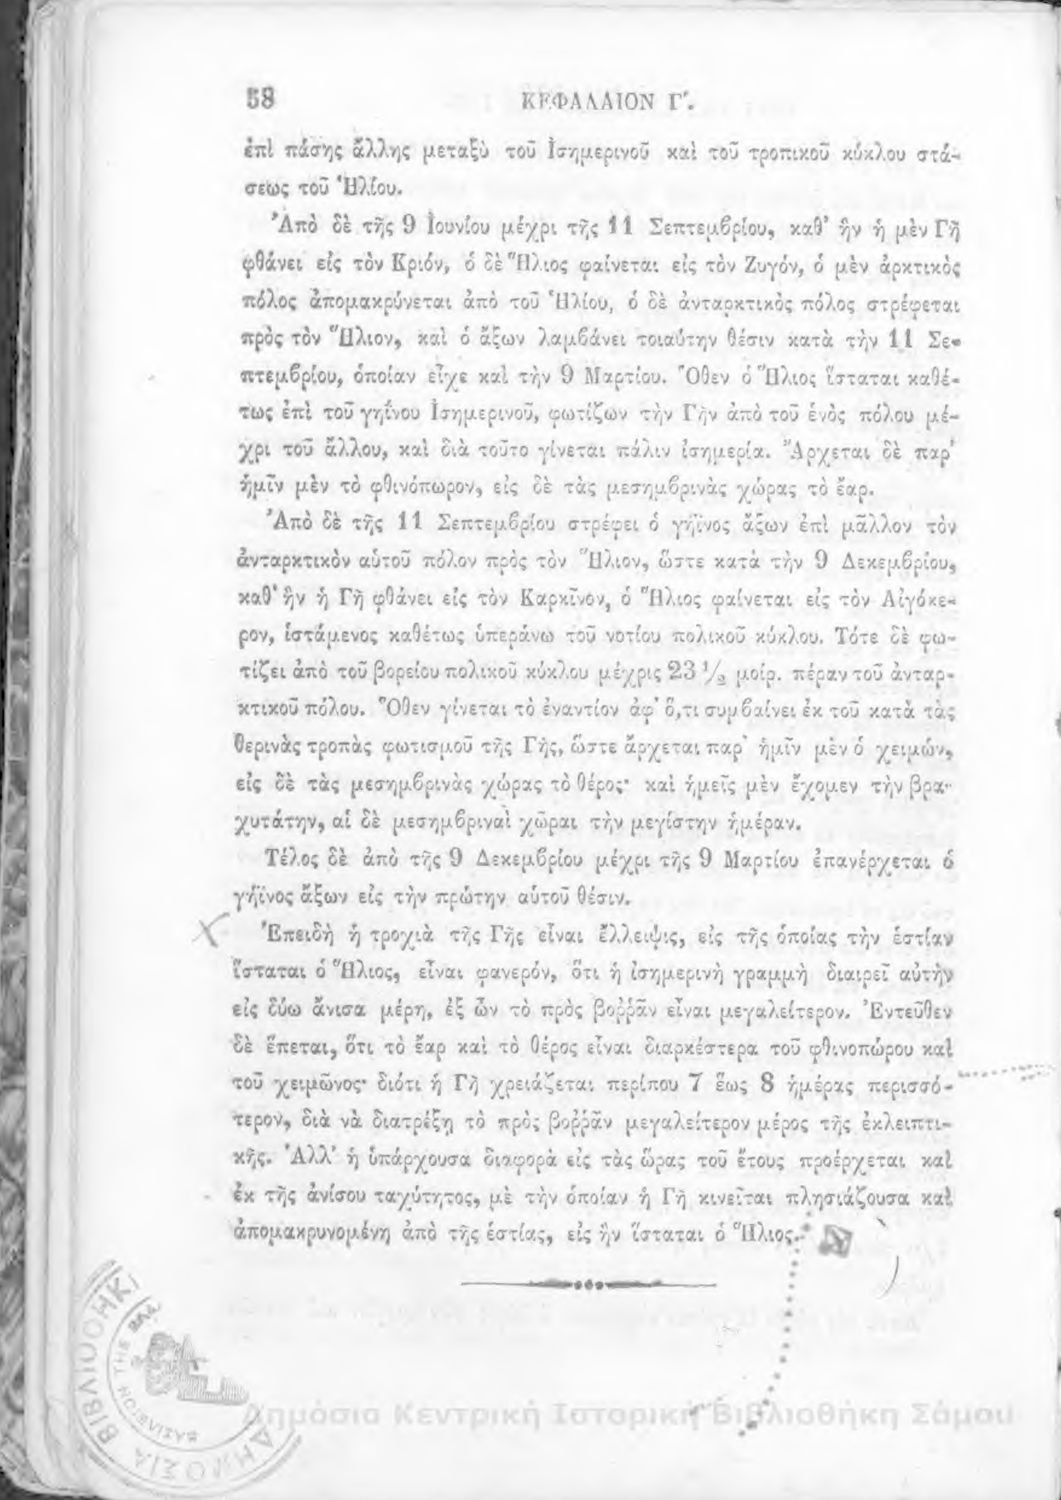 58
ΚΕΦΑΛΑΙΟΝ Γ΄.
ἐπὶ πάσης ἄλλης μεταξὺ τοῦ Ἰσημερινοῦ καὶ τοῦ τροπικοῦ κύκλου στά-
σεως τοῦ Ἡλίου.
Ἀπὸ δὲ τῆς 9 Ἰουνίου μέχρι τῆς 11 Σεπτεμβρίου, καθ᾽ ἣν ἡ μὲν Γῆ
φθάνει εἰς τὸν Κριόν, ὁ δὲ Ἥλιος φαίνεται εἰς τὸν Ζυγόν, ὁ μὲν ἀρκτικὸς
πόλος ἀπομακρύνεται ἀπὸ τοῦ Ἡλίου, ὁ δὲ ἀνταρκτικὸς πόλος στρέφεται
πρὸς τὸν Ἥλιον, καὶ ὁ ἄξων λαμβάνει τοιαύτην θέσιν κατὰ τὴν 11 Σε-
πτεμβρίου, ὁποίαν εἶχε καὶ τὴν 9 Μαρτίου. Ὅθεν ὁ Ἥλιος ἵσταται καθέ-
τως ἐπὶ τοῦ γηΐνου Ἰσημερινοῦ, φωτίζων τὴν Γῆν ἀπὸ τοῦ ἑνὸς πόλου μέ-
χρι τοῦ ἄλλου, καὶ διὰ τοῦτο γίνεται πάλιν ἰσημερία. Ἄρχεται δὲ παρ᾽
ἡμῖν μὲν τὸ φθινόπωρον, εἰς δὲ τὰς μεσημβρινὰς χώρας τὸ ἔαρ.
Ἀπὸ δὲ τῆς 11 Σεπτεμβρίου στρέφει ὁ γήϊνος ἄξων ἐπὶ μᾶλλον τὸν
ἀνταρκτικὸν αὑτοῦ πόλον πρὸς τὸν Ἥλιον, ὥστε κατὰ τὴν 9 Δεκεμβρίου,
καθ᾽ ἣν ἡ Γῆ φθάνει εἰς τὸν Καρκῖνον, ὁ Ἥλιος φαίνεται εἰς τὸν Αἰγόκε-
ρον, ἱστάμενος καθέτως ὑπεράνω τοῦ νοτίου πολικοῦ κύκλου. Τότε δὲ φω-
τίζει ἀπὸ τοῦ βορείου πολικοῦ κύκλου μέχρις 23 1/2 μοίρ. πέραν τοῦ ἀνταρ-
κτικοῦ πόλου. Ὅθεν γίνεται τὸ ἐναντίον ἀφ᾽ ὅ,τι συμβαίνει ἐκ τοῦ κατὰ τὰς
θερινὰς τροπὰς φωτισμοῦ τῆς Γῆς, ὥστε ἄρχεται παρ᾽ ἡμῖν μὲν ὁ χειμών,
εἰς δὲ τὰς μεσημβρινὰς χώρας τὸ θέρος· καὶ ἡμεῖς μὲν ἔχομεν τὴν βρα-
χυτάτην, αἱ δὲ μεσημβριναὶ χῶραι τὴν μεγίστην ἡμέραν.
Τέλος δὲ ἀπὸ τῆς 9 Δεκεμβρίου μέχρι τῆς 9 Μαρτίου ἐπανέρχεται ὁ
γήϊνος ἄξων εἰς τὴν πρώτην αὑτοῦ θέσιν.
Ἐπειδὴ ἡ τροχιὰ τῆς Γῆς εἶναι ἔλλειψις, εἰς τῆς ὁποίας τὴν ἑστίαν
ἵσταται ὁ Ἥλιος, εἶναι φανερόν, ὅτι ἡ ἰσημερινὴ γραμμὴ διαιρεῖ αὐτὴν
εἰς δύω ἄνισα μέρη, ἐξ ὧν τὸ πρὸς βοῤῥᾶν εἶναι μεγαλείτερον. Ἐντεῦθεν
δὲ ἕπεται, ὅτι τὸ ἔαρ καὶ τὸ θέρος εἶναι διαρκέστερα τοῦ φθινοπώρου καὶ
τοῦ χειμῶνος· διότι ἡ Γῆ χρειάζεται περίπου 7 ἕως 8 ἡμέρας περισσό-
τερον, διὰ νὰ διατρέξῃ τὸ πρὸς βοῤῥᾶν μεγαλείτερον μέρος τῆς ἐκλειπτι-
κῆς. Ἀλλ᾽ ἡ ὑπάρχουσα διαφορὰ εἰς τὰς ὥρας τοῦ ἔτους προέρχεται καὶ
ἐκ τῆς ἀνίσου ταχύτητος, μὲ τὴν ὁποίαν ἡ Γῆ κινεῖται πλησιάζουσα καὶ
ἀπομακρυνομένη ἀπὸ τῆς ἑστίας, εἰς ἣν ἵσταται ὁ Ἥλιος.
Δημόσια Κεντρική Ιστορική Βιβλιοθήκη Σάμου
ΔΗΜΟΣΙΑ ΒΙΒΛΙΟΘΗΚΗ